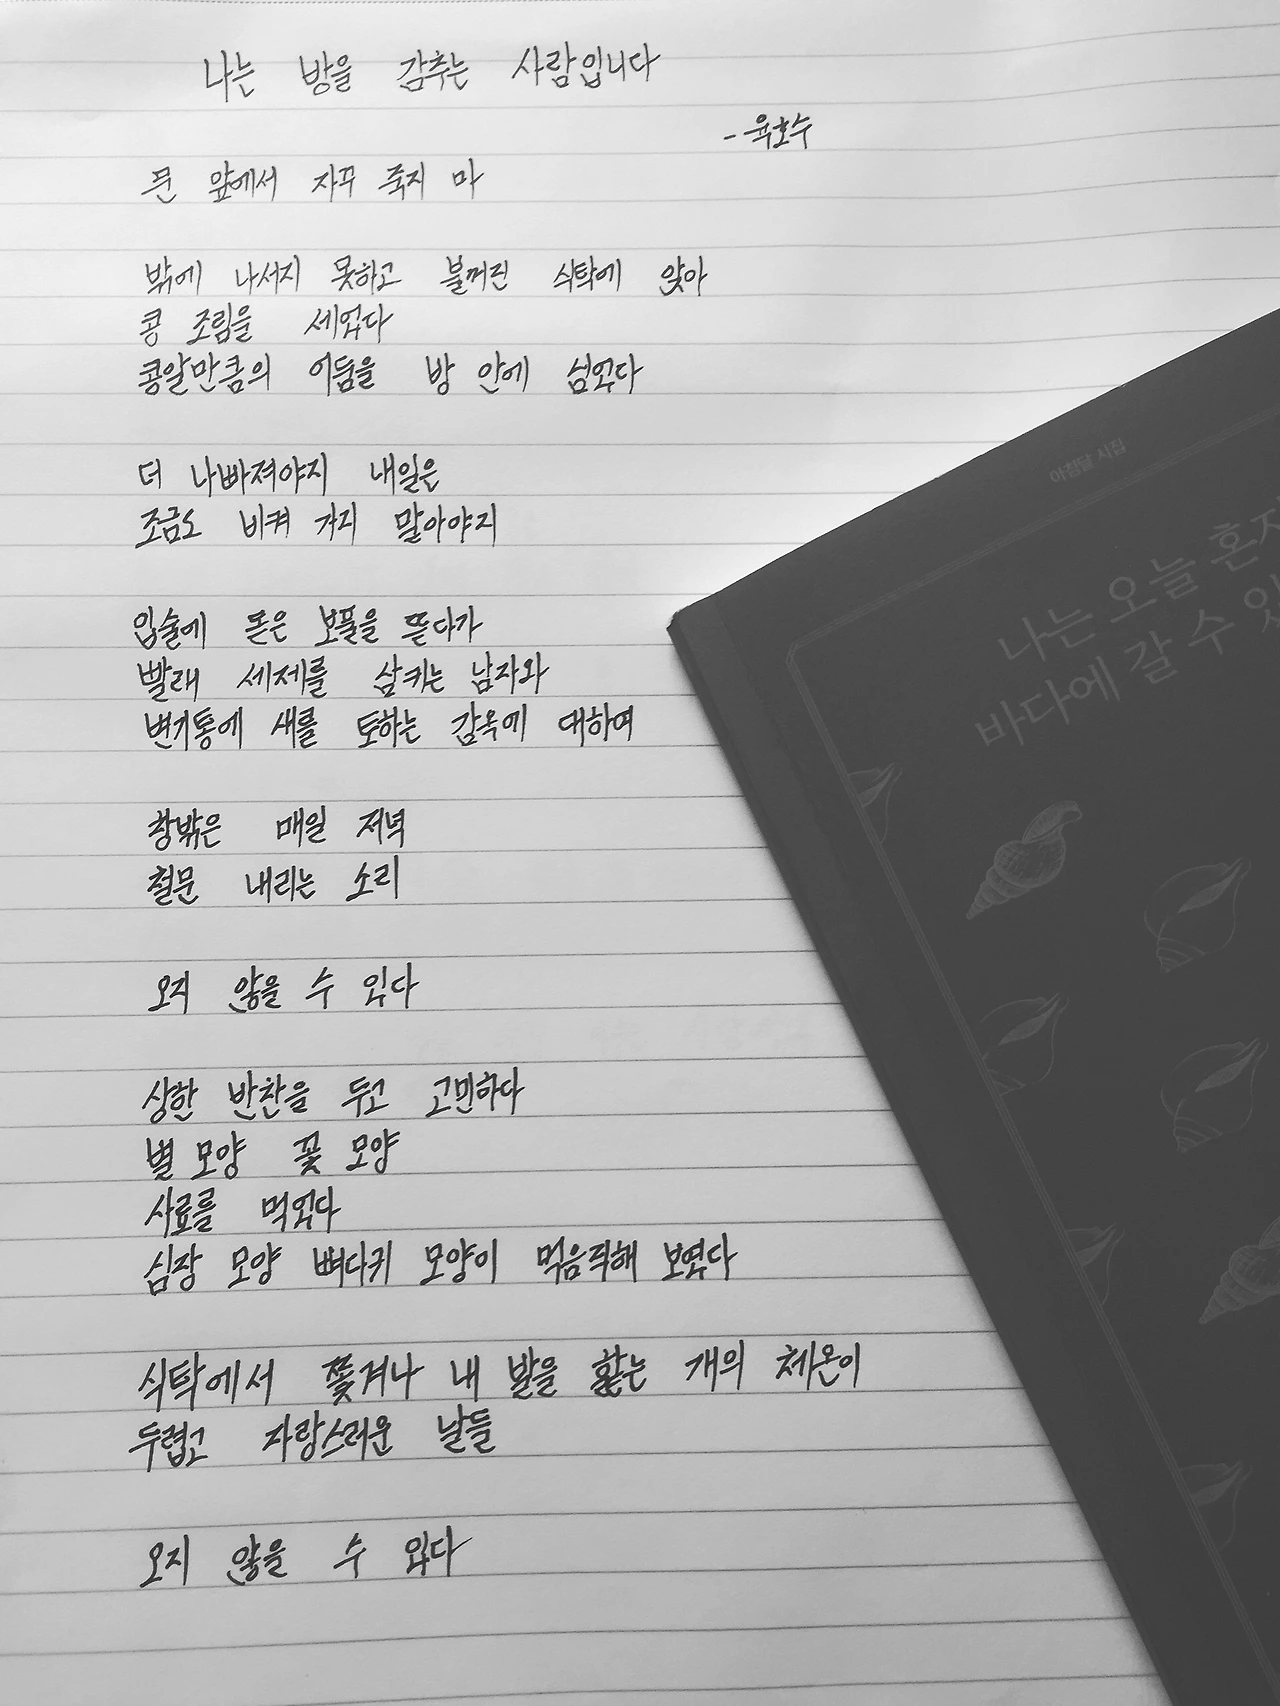 나는 방을 감추는 사람입니다
- 육호수
문 앞에서 자꾸 죽지 마
밖에 나서지 못하고 불꺼진 식탁에 앉아
콩 조림을 세었다
콩알만큼의 어둠을 방 안에 심었다
더 나빠져야지 내일은
조금도 비켜 가지 말아야지
입술에 돋은 보풀을 뜯다가
빨래 세제를 삼키는 남자와
변기통에 새를 토하는 감옥에 대하여
창밖은 매일 저녁
철문 내리는 소리
오지 않을 수 있다
상한 반찬을 두고 고민하다
별 모양 꽃 모양
사료를 먹었다
심장 모양 뼈다귀 모양이 먹음직해 보였다
식탁에서 쫓겨나 내 발을 핥는 개의 체온이
두렵고 자랑스러운 날들
오지 않을 수 있다
아침달 시집
나는 오늘 혼자
바다에 갈 수 있